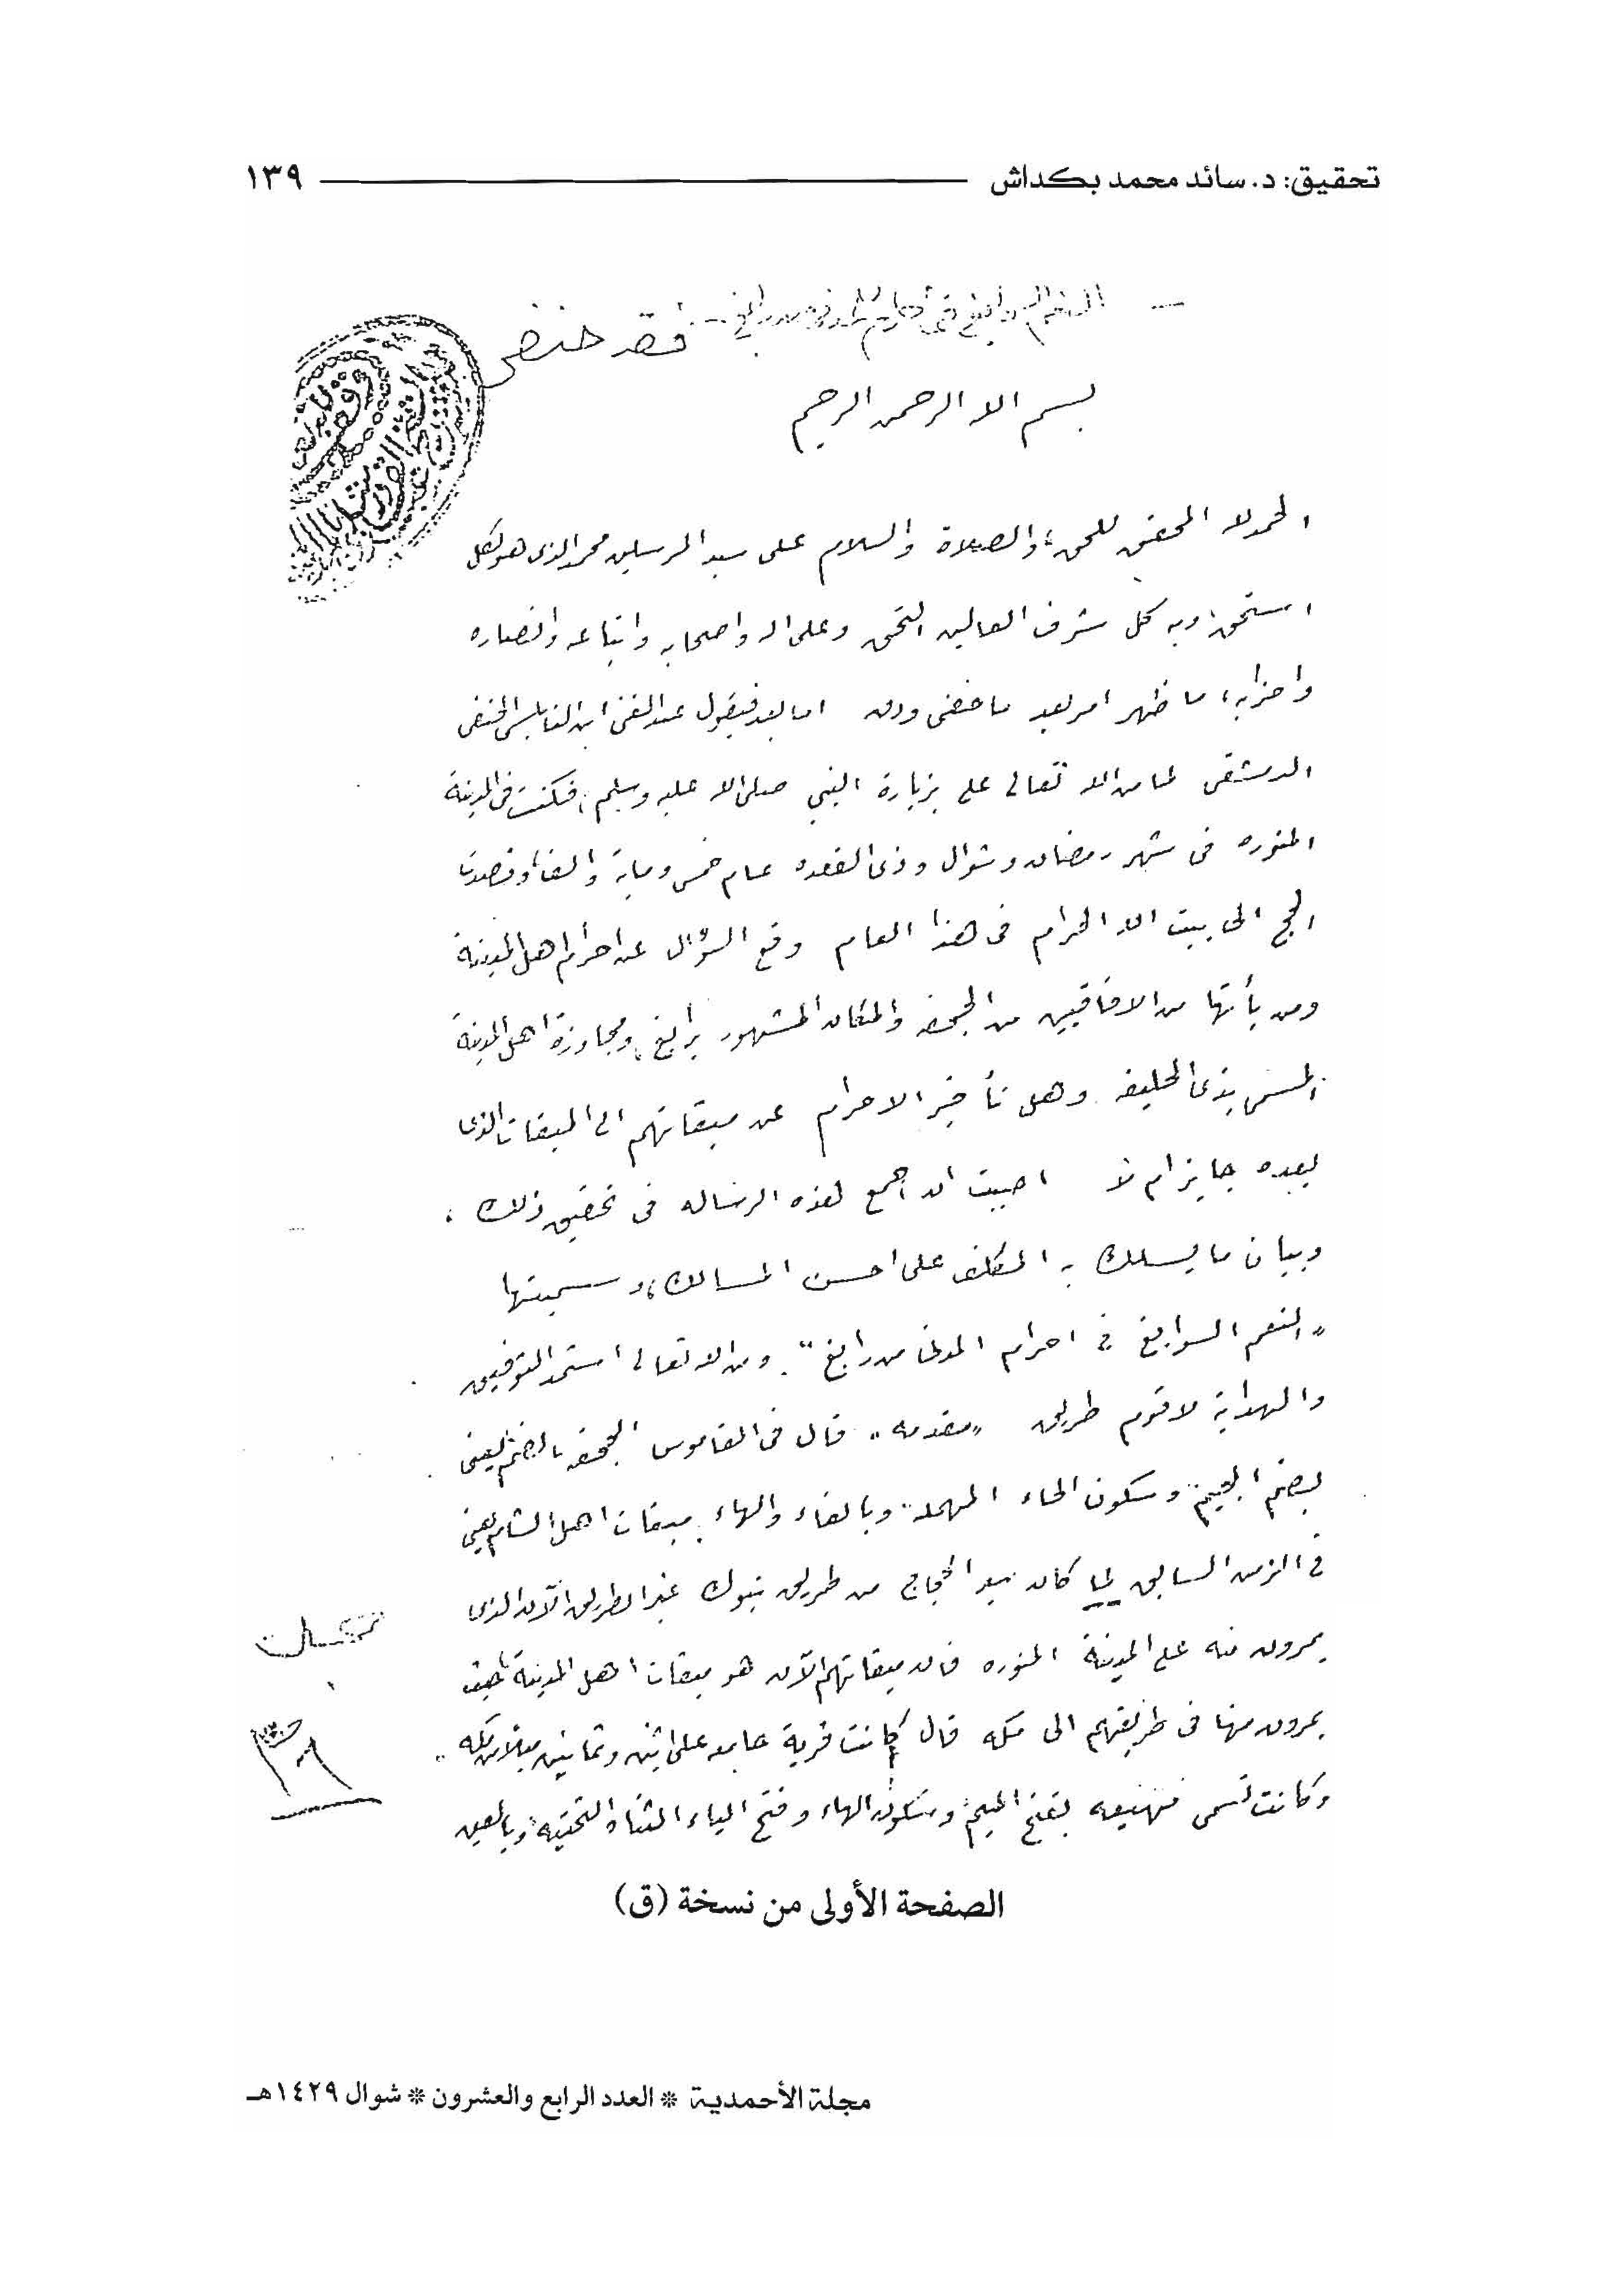 تحقيق: د. سائد محمد بكداش ١٣٩
فقه حنفي
بسم الله الرحمن الرحيم
الحمد لله المحقق للحق، والصلاة والسلام على سيد المرسلين محمد الذى هو لكل
استحق، وبه كل شرف العالمين التحق وعلى اله واصحابه واتباعه وانصاره
واحزابه، ما ظهر امر بعد ما خفى ودق اما بعد فيقول عبد الغنى ابن النابلسى الحنفى
الدمشقى لما من الله تعالى على بزيارة النبي صلى الله عليه وسلم، فكنت فى المدينة
المنوره فى شهر رمضان وشوال وذى القعده عام خمس وماية والف، وقصدت
الحج الى بيت الله الحرام فى هذا العام وقع السؤال عن احرام اهل المدينة
ومن يأتها من الافاقيين من الجحفه والمكان المشهور برابغ، ومجاوزة اهل المدينة
المسمى بذى الحليفه وهل تأخير الاحرام عن ميقاتهم الى الميقات الذى
بعده جايز ام لا احببت ان اجمع هذه الرساله فى تحقيق ذلك،
وبيان ما يسلك به المكلف على احسن المسالك، وسميتها
"النعم السوابغ في احرام المدنى من رابغ" ومن الله تعالى استمد التوفيق
والهداية لاقوم طريق "مقدمه" قال فى القاموس الجحفه بالضم يعنى
بضم الجيم وسكون الحاء المهمله وبالفاء والهاء ميقات اهل الشام يعني
في الزمن السابق لما كان الحجاج من طريق تبوك غير الطريق الآن الذى
يمرون منه على المدينة المنوره فان ميقاتهم الآن هو ميقات اهل المدينة
يمرون منها فى طريقهم الى مكه قال كانت قرية جامعه على اثنين وثمانين ميلا من مكه
وكانت تسمى مهيعه بفتح الميم وسكون الهاء وفتح الياء المثناة التحتيه وبالعين
الصفحة الأولى من نسخة (ق)
مجلة الأحمدية * العدد الرابع والعشرون * شوال ١٤٢٩هـ